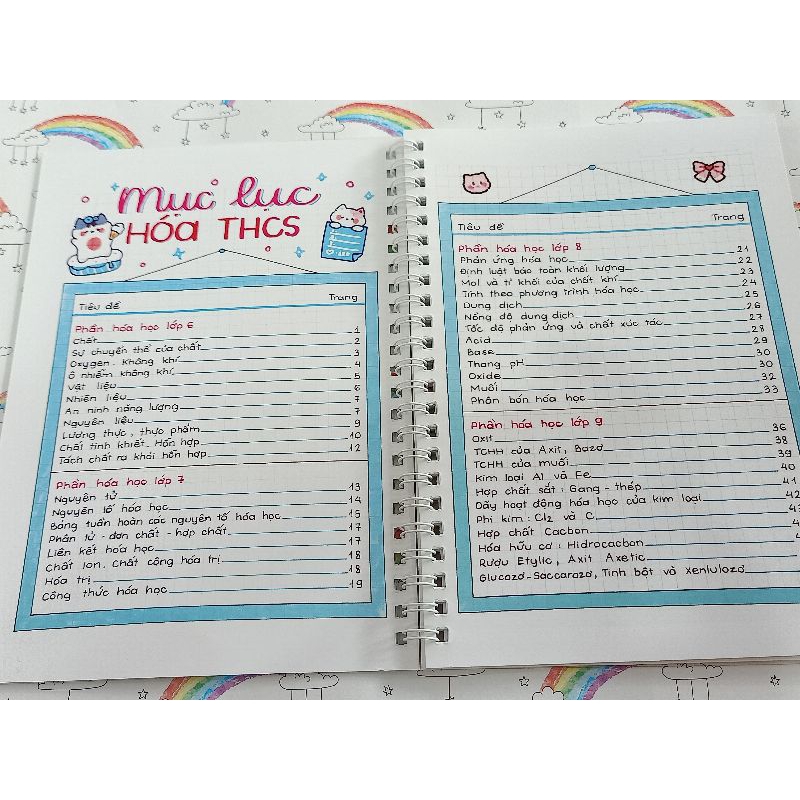 Mục lục
HÓA THCS
Tiêu đề Trang
Phần hóa học lớp 6
Chất 1
Sự chuyển thể của chất 2
Oxygen. Không khí 3
Ô nhiễm không khí 4
Vật liệu 5
Nhiên liệu 6
An ninh năng lượng 7
Nguyên liệu 7
Lương thực, thực phẩm 9
Chất tinh khiết. Hỗn hợp 10
Tách chất ra khỏi hỗn hợp 12
Phần hóa học lớp 7
Nguyên tử 13
Nguyên tố hóa học 14
Bảng tuần hoàn các nguyên tố hóa học 15
Phân tử - đơn chất - hợp chất 17
Liên kết hóa học 17
Chất ion. Chất cộng hóa trị 18
Hóa trị 18
Công thức hóa học 19
Tiêu đề Trang
Phần hóa học lớp 8
Phản ứng hóa học 21
Định luật bảo toàn khối lượng 22
Mol và tỉ khối của chất khí 23
Tính theo phương trình hóa học 24
Dung dịch 25
Nồng độ dung dịch 26
Tốc độ phản ứng và chất xúc tác 27
Acid 28
Base 29
Thang pH 30
Oxide 30
Muối 32
Phân bón hóa học 33
Phần hóa học lớp 9
Oxit 36
TCHH của Axit, Bazơ 38
TCHH của muối 39
Kim loại Al và Fe 40
Hợp chất sắt: Gang - thép 41
Dãy hoạt động hóa học của kim loại 42
Phi kim: Cl2 và C
Hợp chất Cacbon
Hóa hữu cơ: Hidrocacbon
Rượu Etylic, Axit Axetic
Glucozơ - Saccarozơ, Tinh bột và xenlulozơ